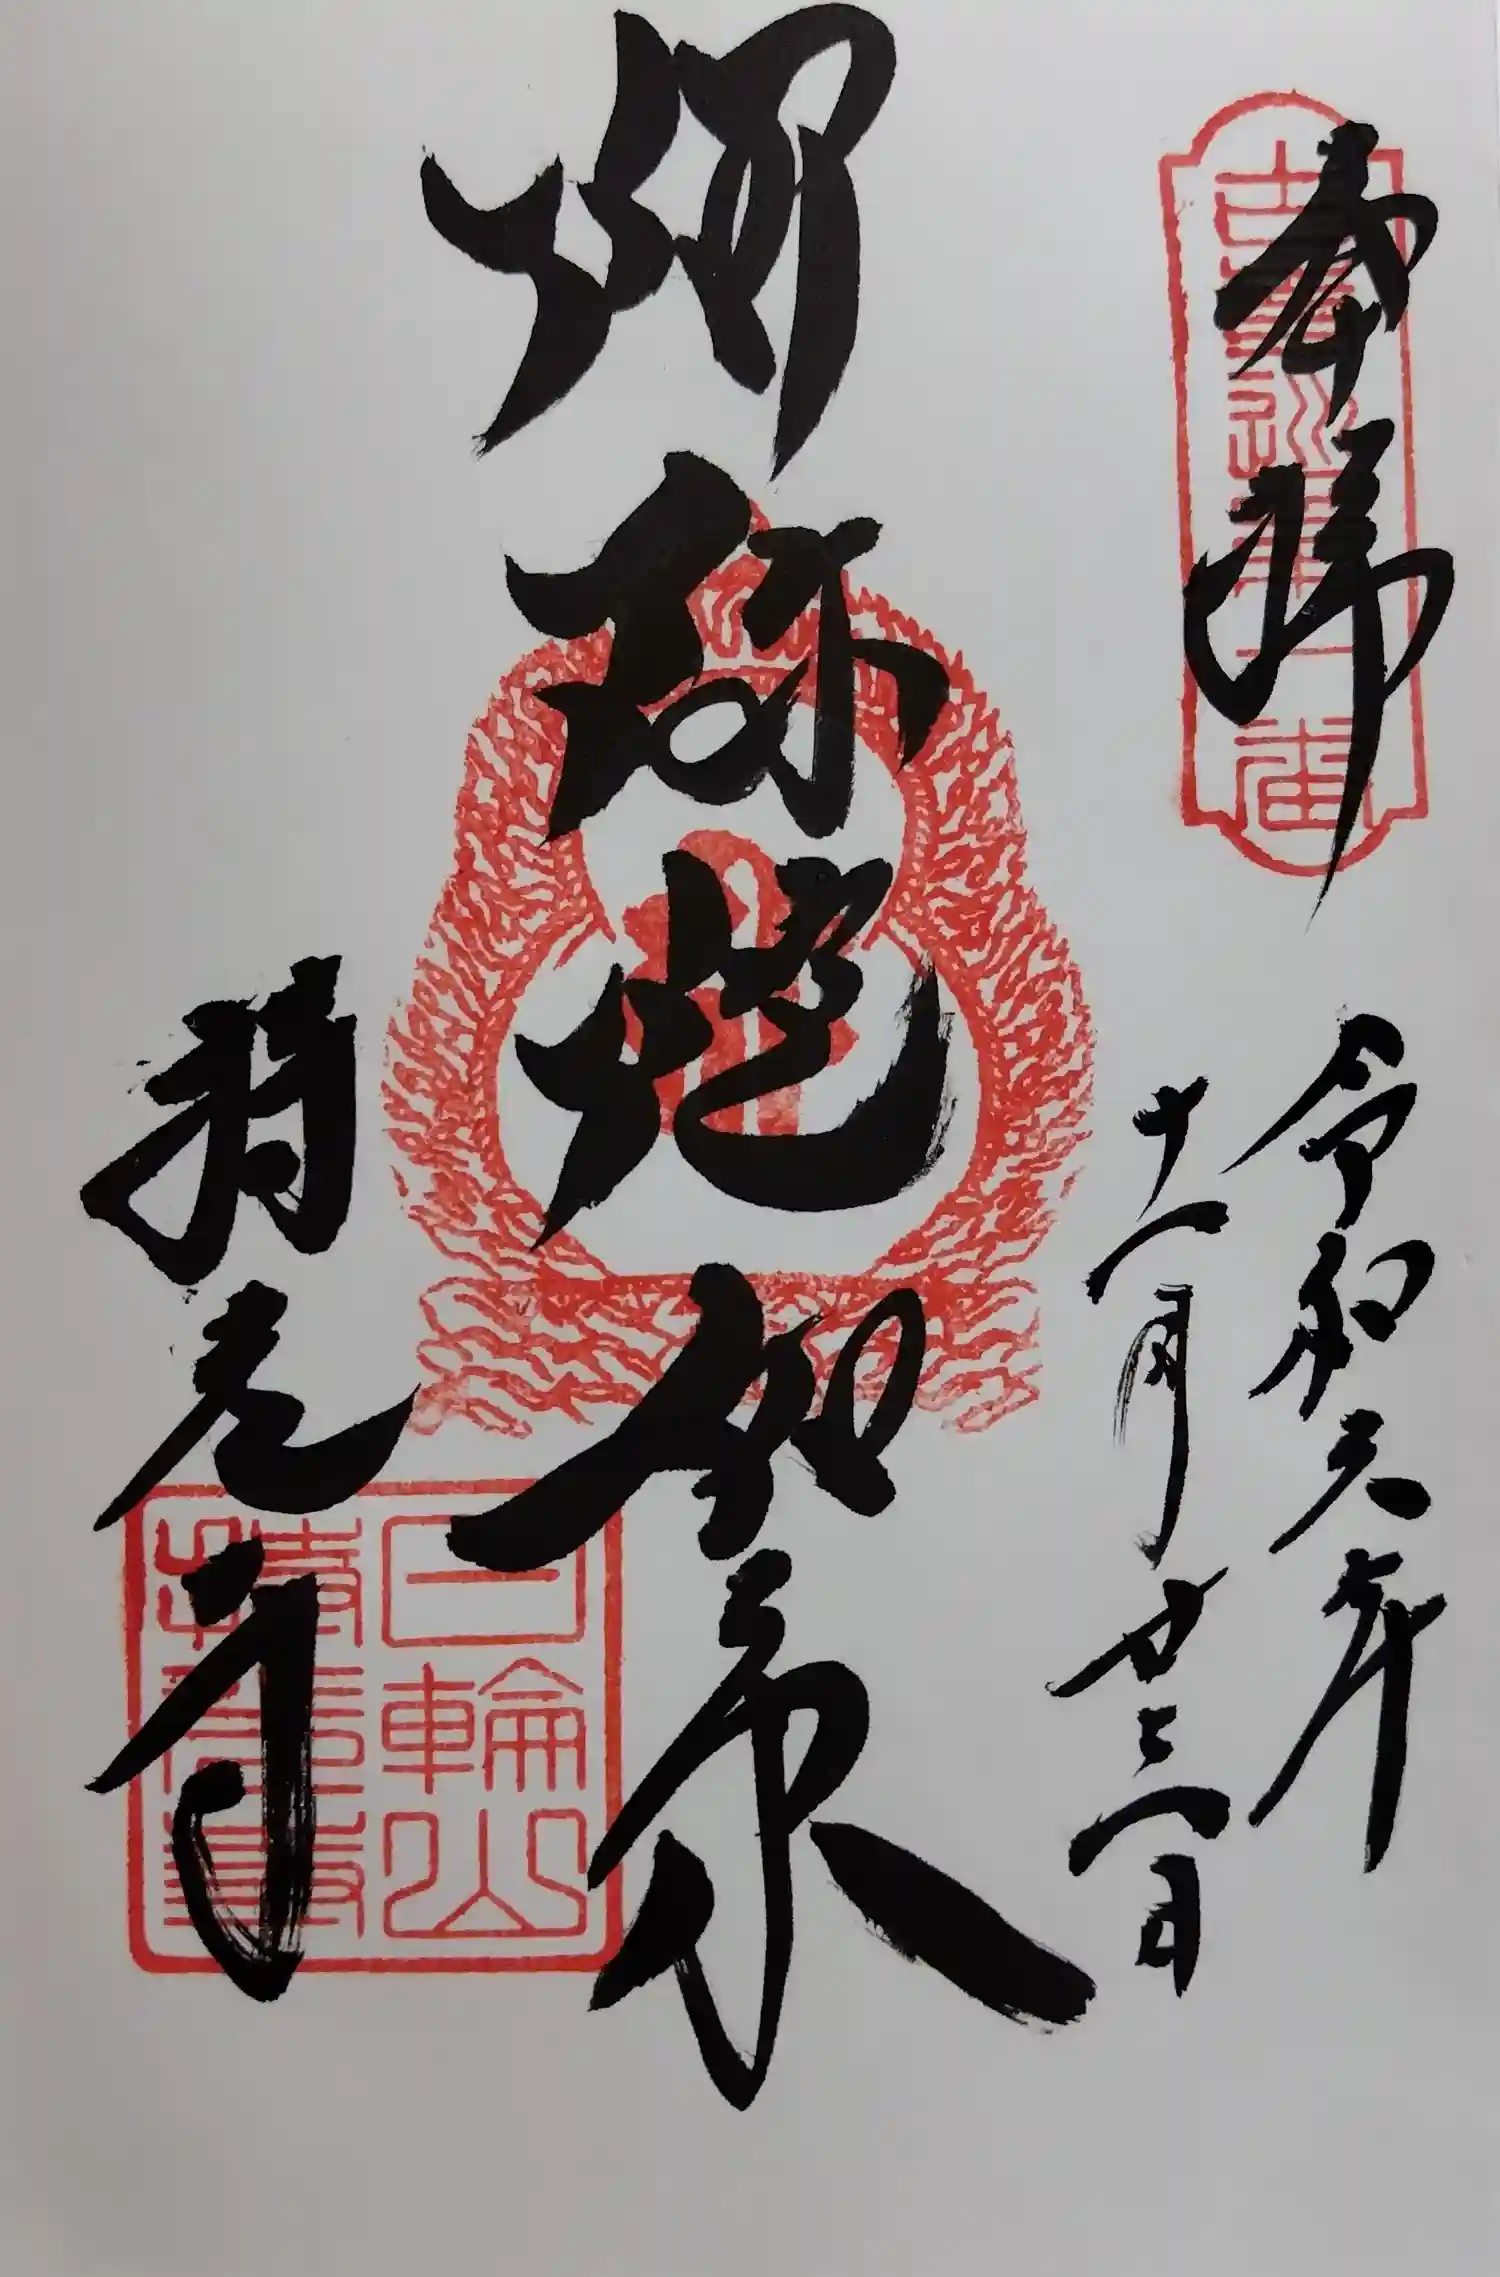 奉拝
令和元年
十一月廿三日
阿弥陀如来
持光寺
日輪山